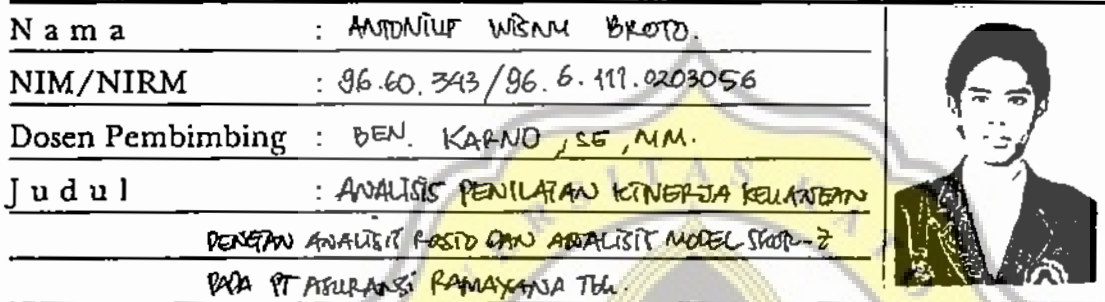 N a m a : ANTONIUS WISNU BROTO.
NIM/NIRM : 96.60.343/96.6.111.0203056
Dosen Pembimbing : BEN. KARNO, SE, MM.
J u d u l : ANALISIS PENILAIAN KINERJA KEUANGAN
DENGAN ANALISIS RASIO DAN ANALISIS MODEL SKOR-Z
PADA PT ASURANSI RAMAYANA Tbk.
RSITAS KA